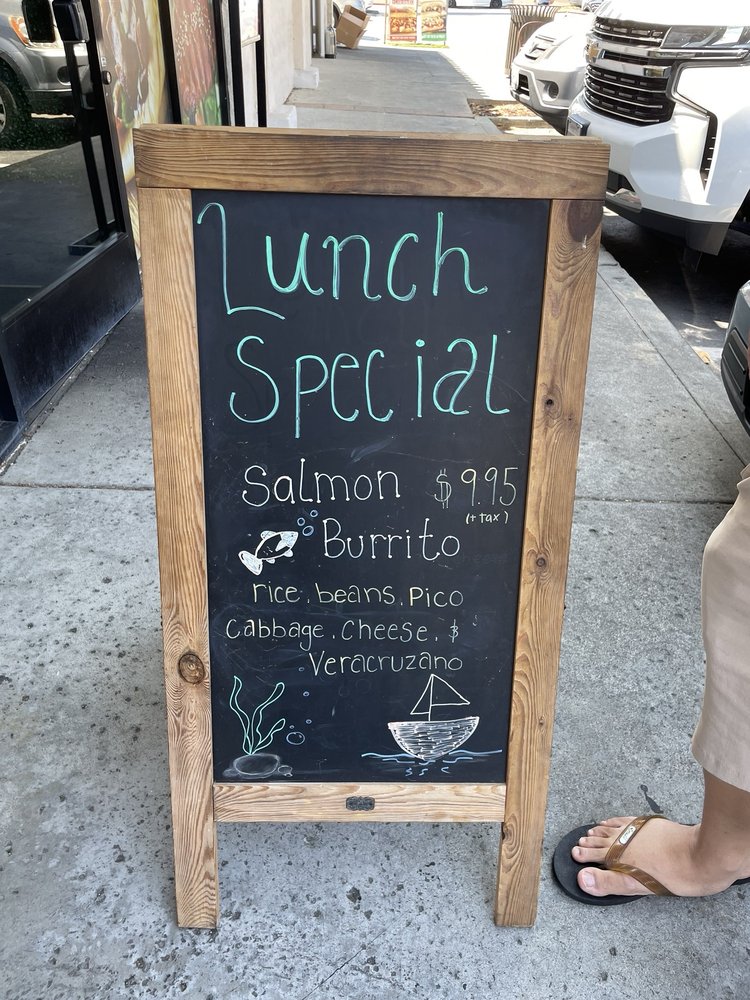 Lunch
Special
Salmon $9.95
(+ tax)
Burrito
rice, beans, Pico
Cabbage, Cheese, &
Veracruzano